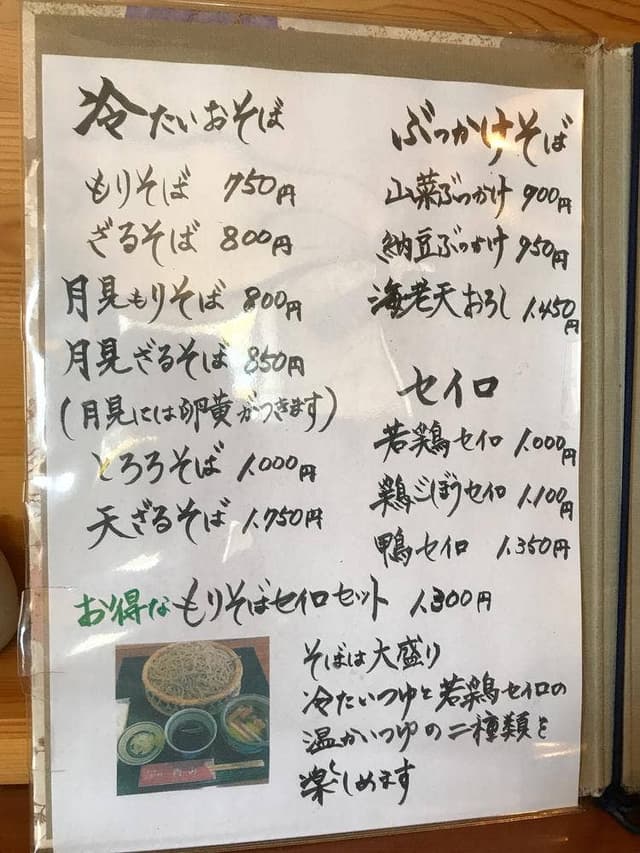 冷たいおそば
もりそば 750円
ざるそば 800円
月見もりそば 800円
月見ざるそば 850円
(月見には卵黄がつきます)
とろろそば 1,000円
天ざるそば 1,750円
ぶっかけそば
山菜ぶっかけ 900円
納豆ぶっかけ 950円
海老天おろし 1,450円
セイロ
若鶏セイロ 1,000円
鶏ごぼうセイロ 1,100円
鴨セイロ 1,350円
お得なもりそばセイロセット 1,300円
そばは大盛り
冷たいつゆと若鶏セイロの
温かいつゆの二種類を
楽しめます